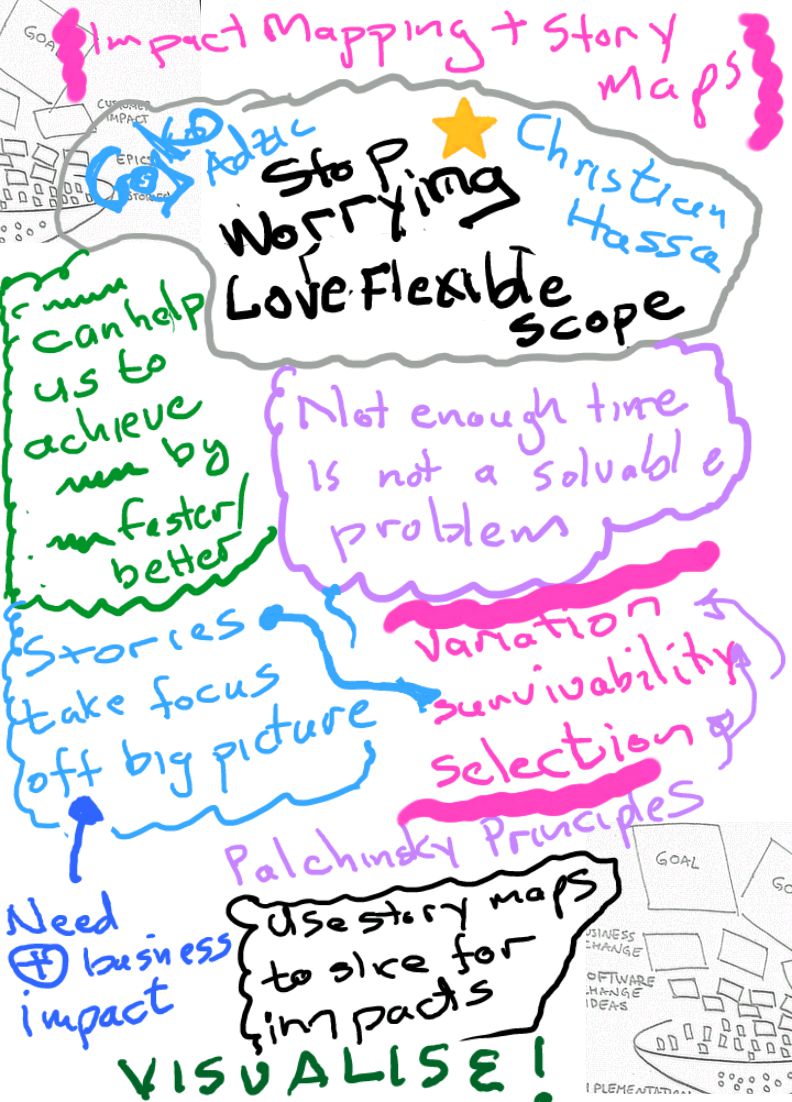 Impact Mapping + Story
Maps
GOA
CUSTOMER
IMPACT
EPICS
STORIES
Gojko
Adzic
Christian
Hassa
Stop
Worrying
Love Flexible
scope
can help
us to
achieve
by
faster/
better
Not enough time
is not a solvable
problem
Stories
take focus
off big picture
Variation
survivability
Selection
Palchinsky Principles
Need
+ business
impact
Use story maps
to slice for
impacts
VISUALISE!
GOAL
GO
USINESS
CHANGE
OFTWARE
HANGE
IDEAS
IMPLEMENTATION